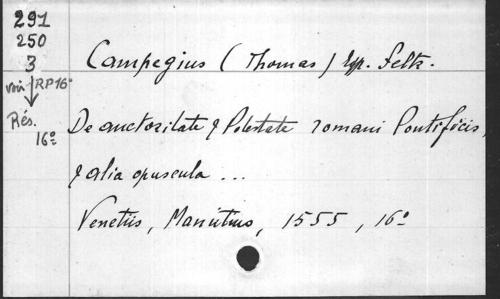 291
250
3
voir RP16°
Rés.
16º
Campegius (Thomas) Ep. Feltr.
De auctoritate & Potestate romani Pontificis,
& alia opuscula ...
Venetiis, Manutius, 1555, 16º